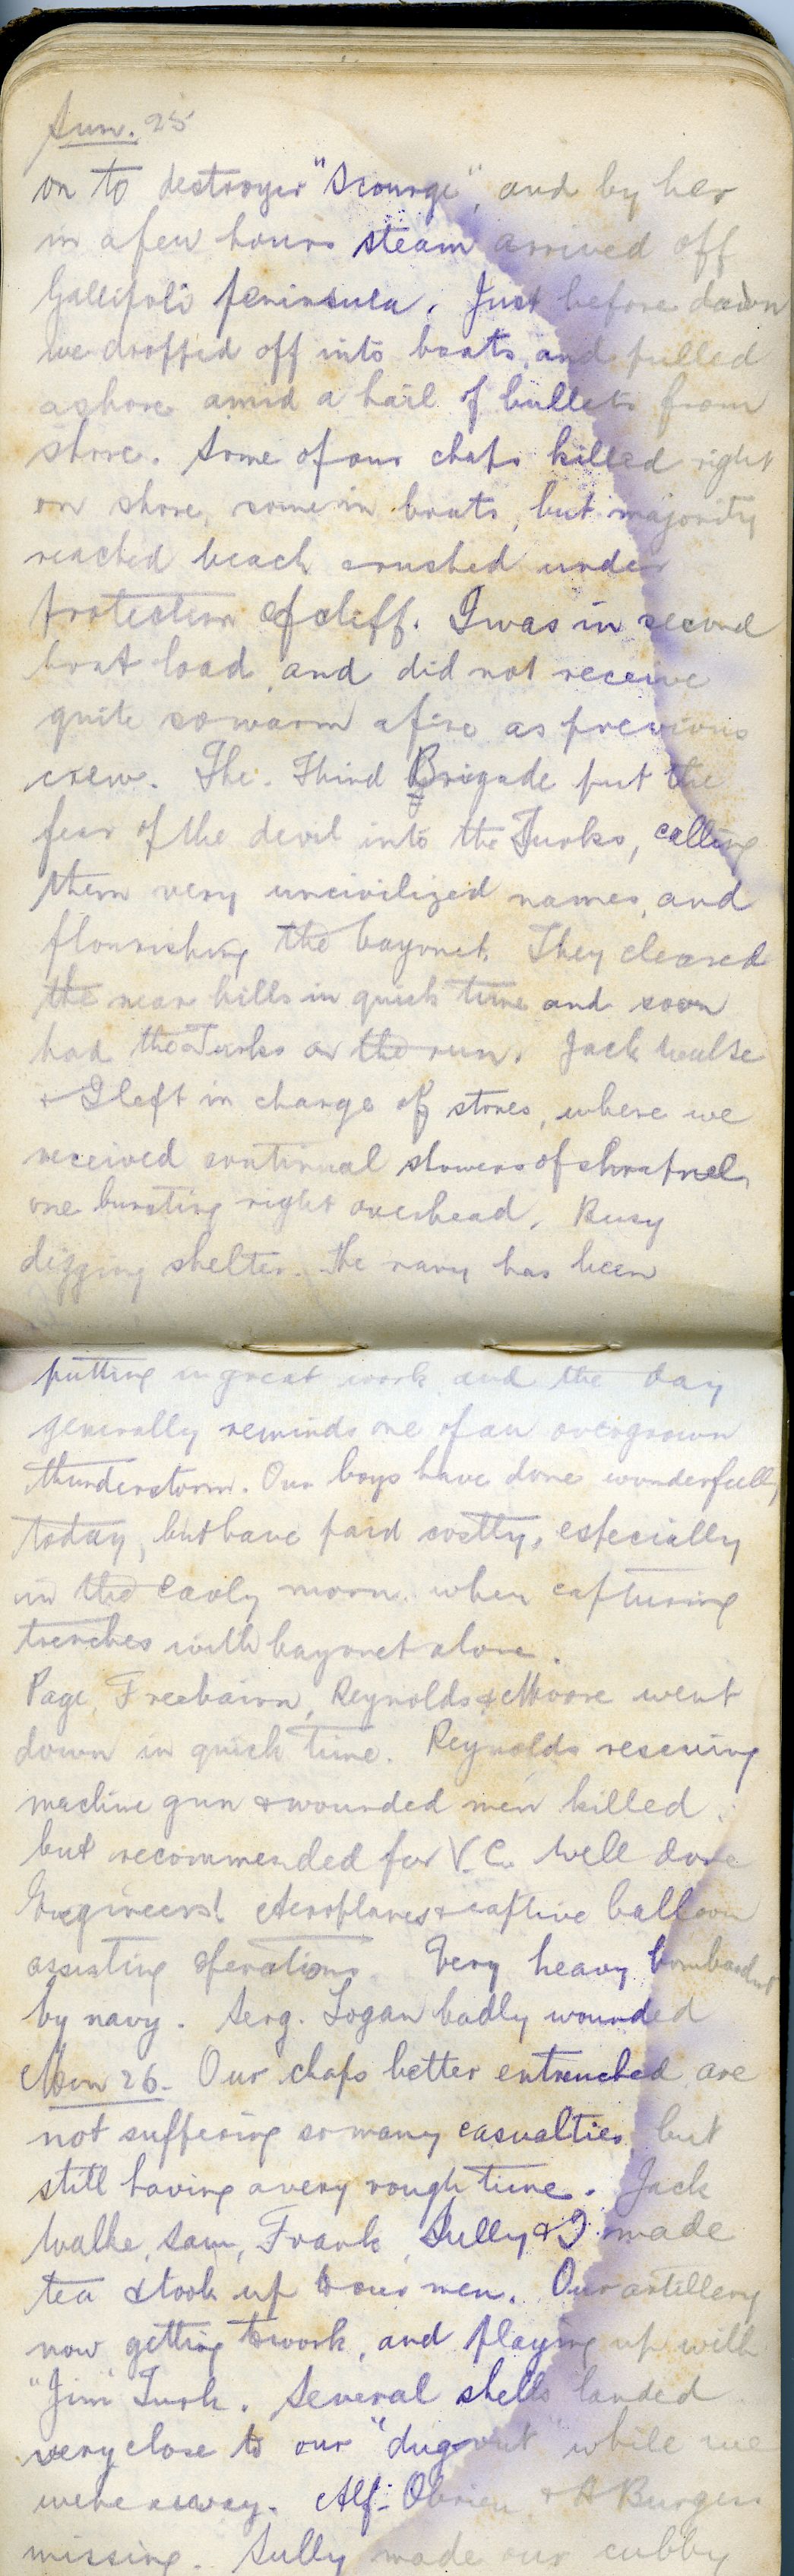 Sun. 25
on to destroyer "Scourge", and by her
in a few hours steam arrived off
Gallipoli peninsula. Just before dawn
we dropped off into boats, and pulled
ashore amid a hail of bullets from
shore. Some of our chaps killed right
on shore, some in boats, but majority
reached beach & rushed under
protection of cliff. I was in second
boat load, and did not receive
quite so warm a fire as previous
crew. The Third Brigade put the
fear of the devil into the Turks, calling
them very uncivilized names, and
flourishing the bayonet. They cleared
the near hills in quick time and soon
had the Turks on the run. Jack
& I left in charge of stores, where we
received continual showers of shrapnel,
one bursting right overhead. Busy
digging shelter. The navy has been
putting in great work and the day
generally reminds one of an overgrown
thunderstorm. Our boys have done wonderfully
today, but have paid costly, especially
in the early morn. when capturing
trenches with bayonet alone.
Page, Freebairn, Reynolds & Moore went
down in quick time. Reynolds rescuing
machine gun & wounded men killed.
but recommended for V.C. Well done
Engineers! Aeroplanes & captive balloon
assisting operations. Very heavy bombardmt
by navy. Serg. Logan badly wounded
Mon 26. Our chaps better entrenched are
not suffering so many casualties, but
still having a very rough time. Jack
Sam, Frank, Sully & I made
tea & took up to our men. Our artillery
now getting to work, and playing up with
"Jim" Turk. Several shells landed
very close to our "dug out" while we
were away. Alf. Obrien & A Burgess
missing. Sully made our cubby